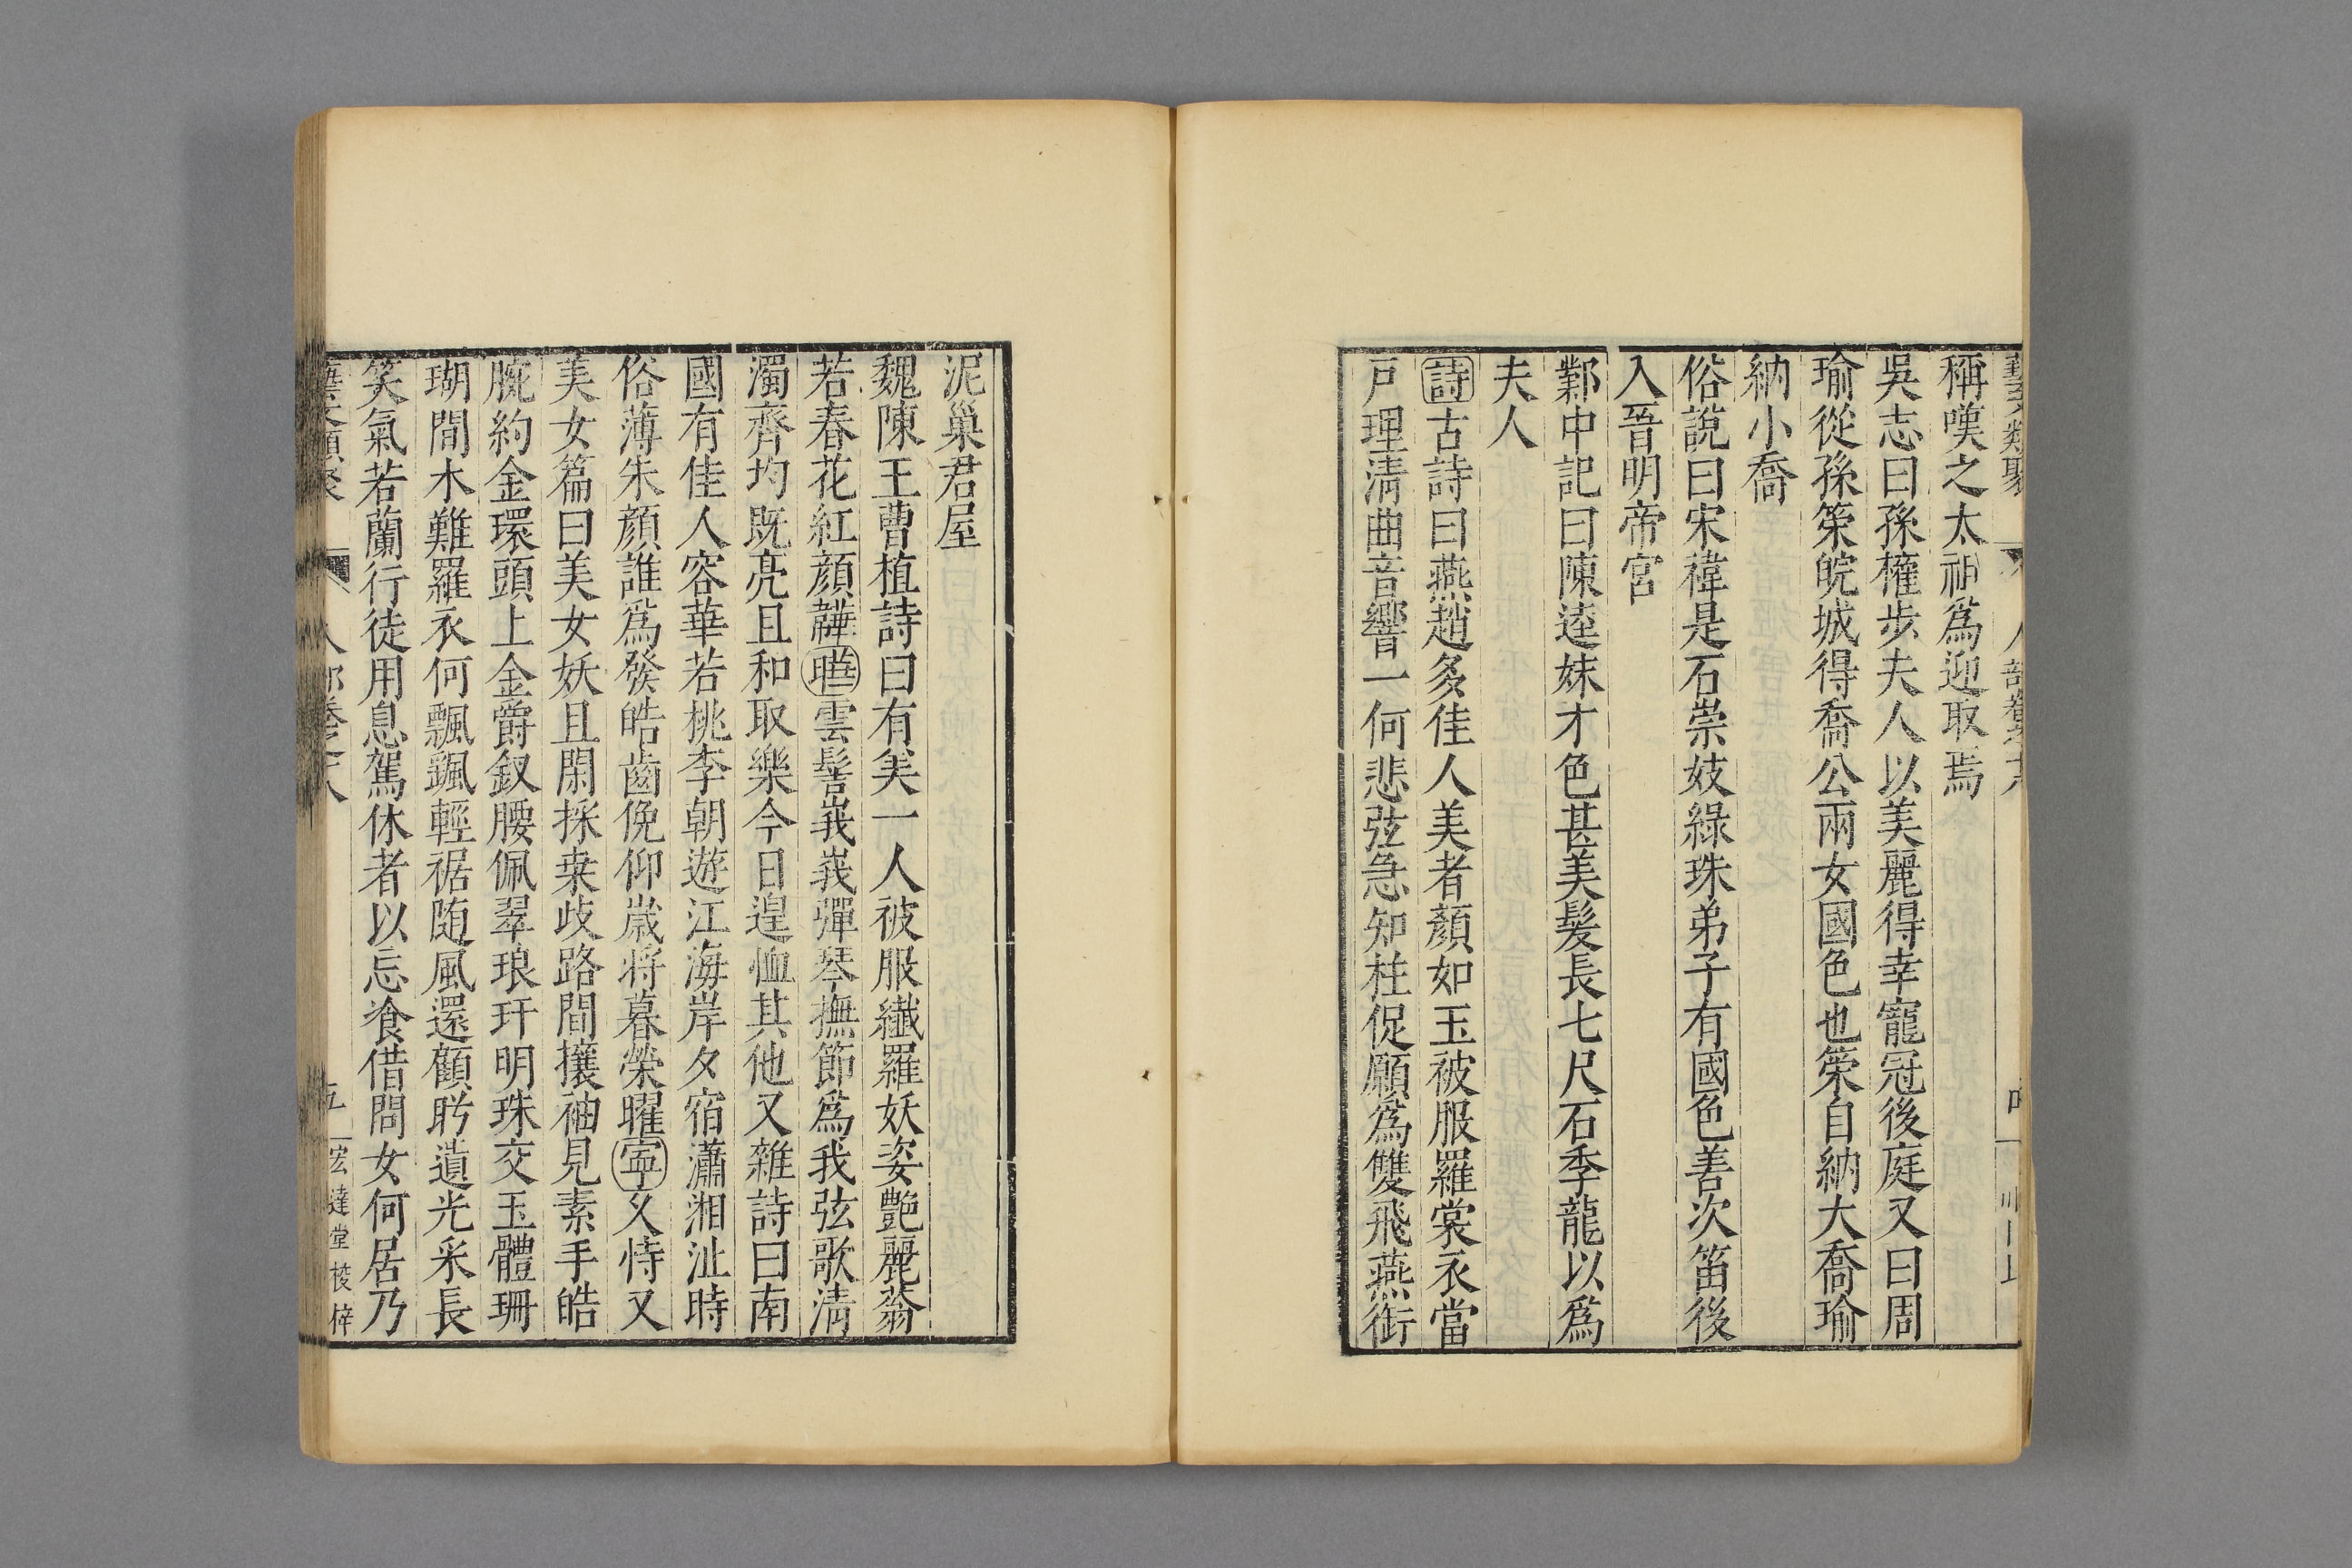 藝文類聚 人部卷十八
稱嘆之太祖爲迎取焉
吳志曰孫權步夫人以美麗得幸寵冠後庭又曰周
瑜從孫策皖城得喬公兩女國色也策自納大喬瑜
納小喬
俗說曰宋禕是石崇妓綠珠弟子有國色善次笛後
入晉明帝宮
鄴中記曰陳逵妹才色甚美髮長七尺石季龍以爲
夫人
詩古詩曰燕趙多佳人美者顏如玉被服羅裳衣當
戸理淸曲音響一何悲弦急知柱促願爲雙飛燕銜
泥巢君屋
魏陳王曹植詩曰有美一人被服纖羅妖姿艷麗蓊
若春花紅顏韡曄雲髻峩峩彈琴撫節爲我弦歌淸
濁齊均既亮且和取樂今日遑恤其他又雜詩曰南
國有佳人容華若桃李朝遊江海岸夕宿瀟湘沚時
俗薄朱顏誰爲發皓齒俛仰歲將暮榮曜寧久恃又
美女篇曰美女妖且閑採桒歧路間攘袖見素手皓
腕約金環頭上金爵釵腰佩翠琅玕明珠交玉體珊
瑚間木難羅衣何飄颻輕裾随風還顧眄遺光采長
笑氣若蘭行徒用息駕休者以忘飡借問女何居乃
藝文類聚 人部卷之十八 五 宏達堂校倅